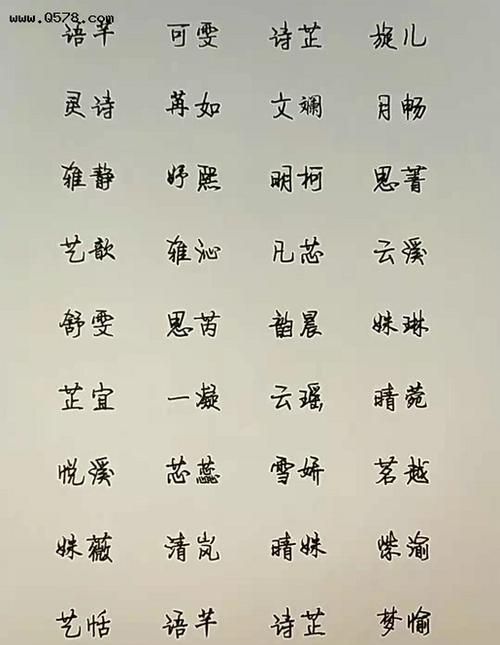 www.Q578.com
语芊 可雯 诗芷 旋儿
灵诗 苒如 文斓 月畅
雅静 妤熙 明柯 思菁
艺歆 雅沁 凡芯 云溪
舒雯 思芮 韵晨 姝琳
芷宜 一凝 云瑶 晴菀
悦溪 芯蕊 雪妍 茗越
姝薇 清岚 晴姝 紫渝
艺恬 语芊 诗芷 梦愉